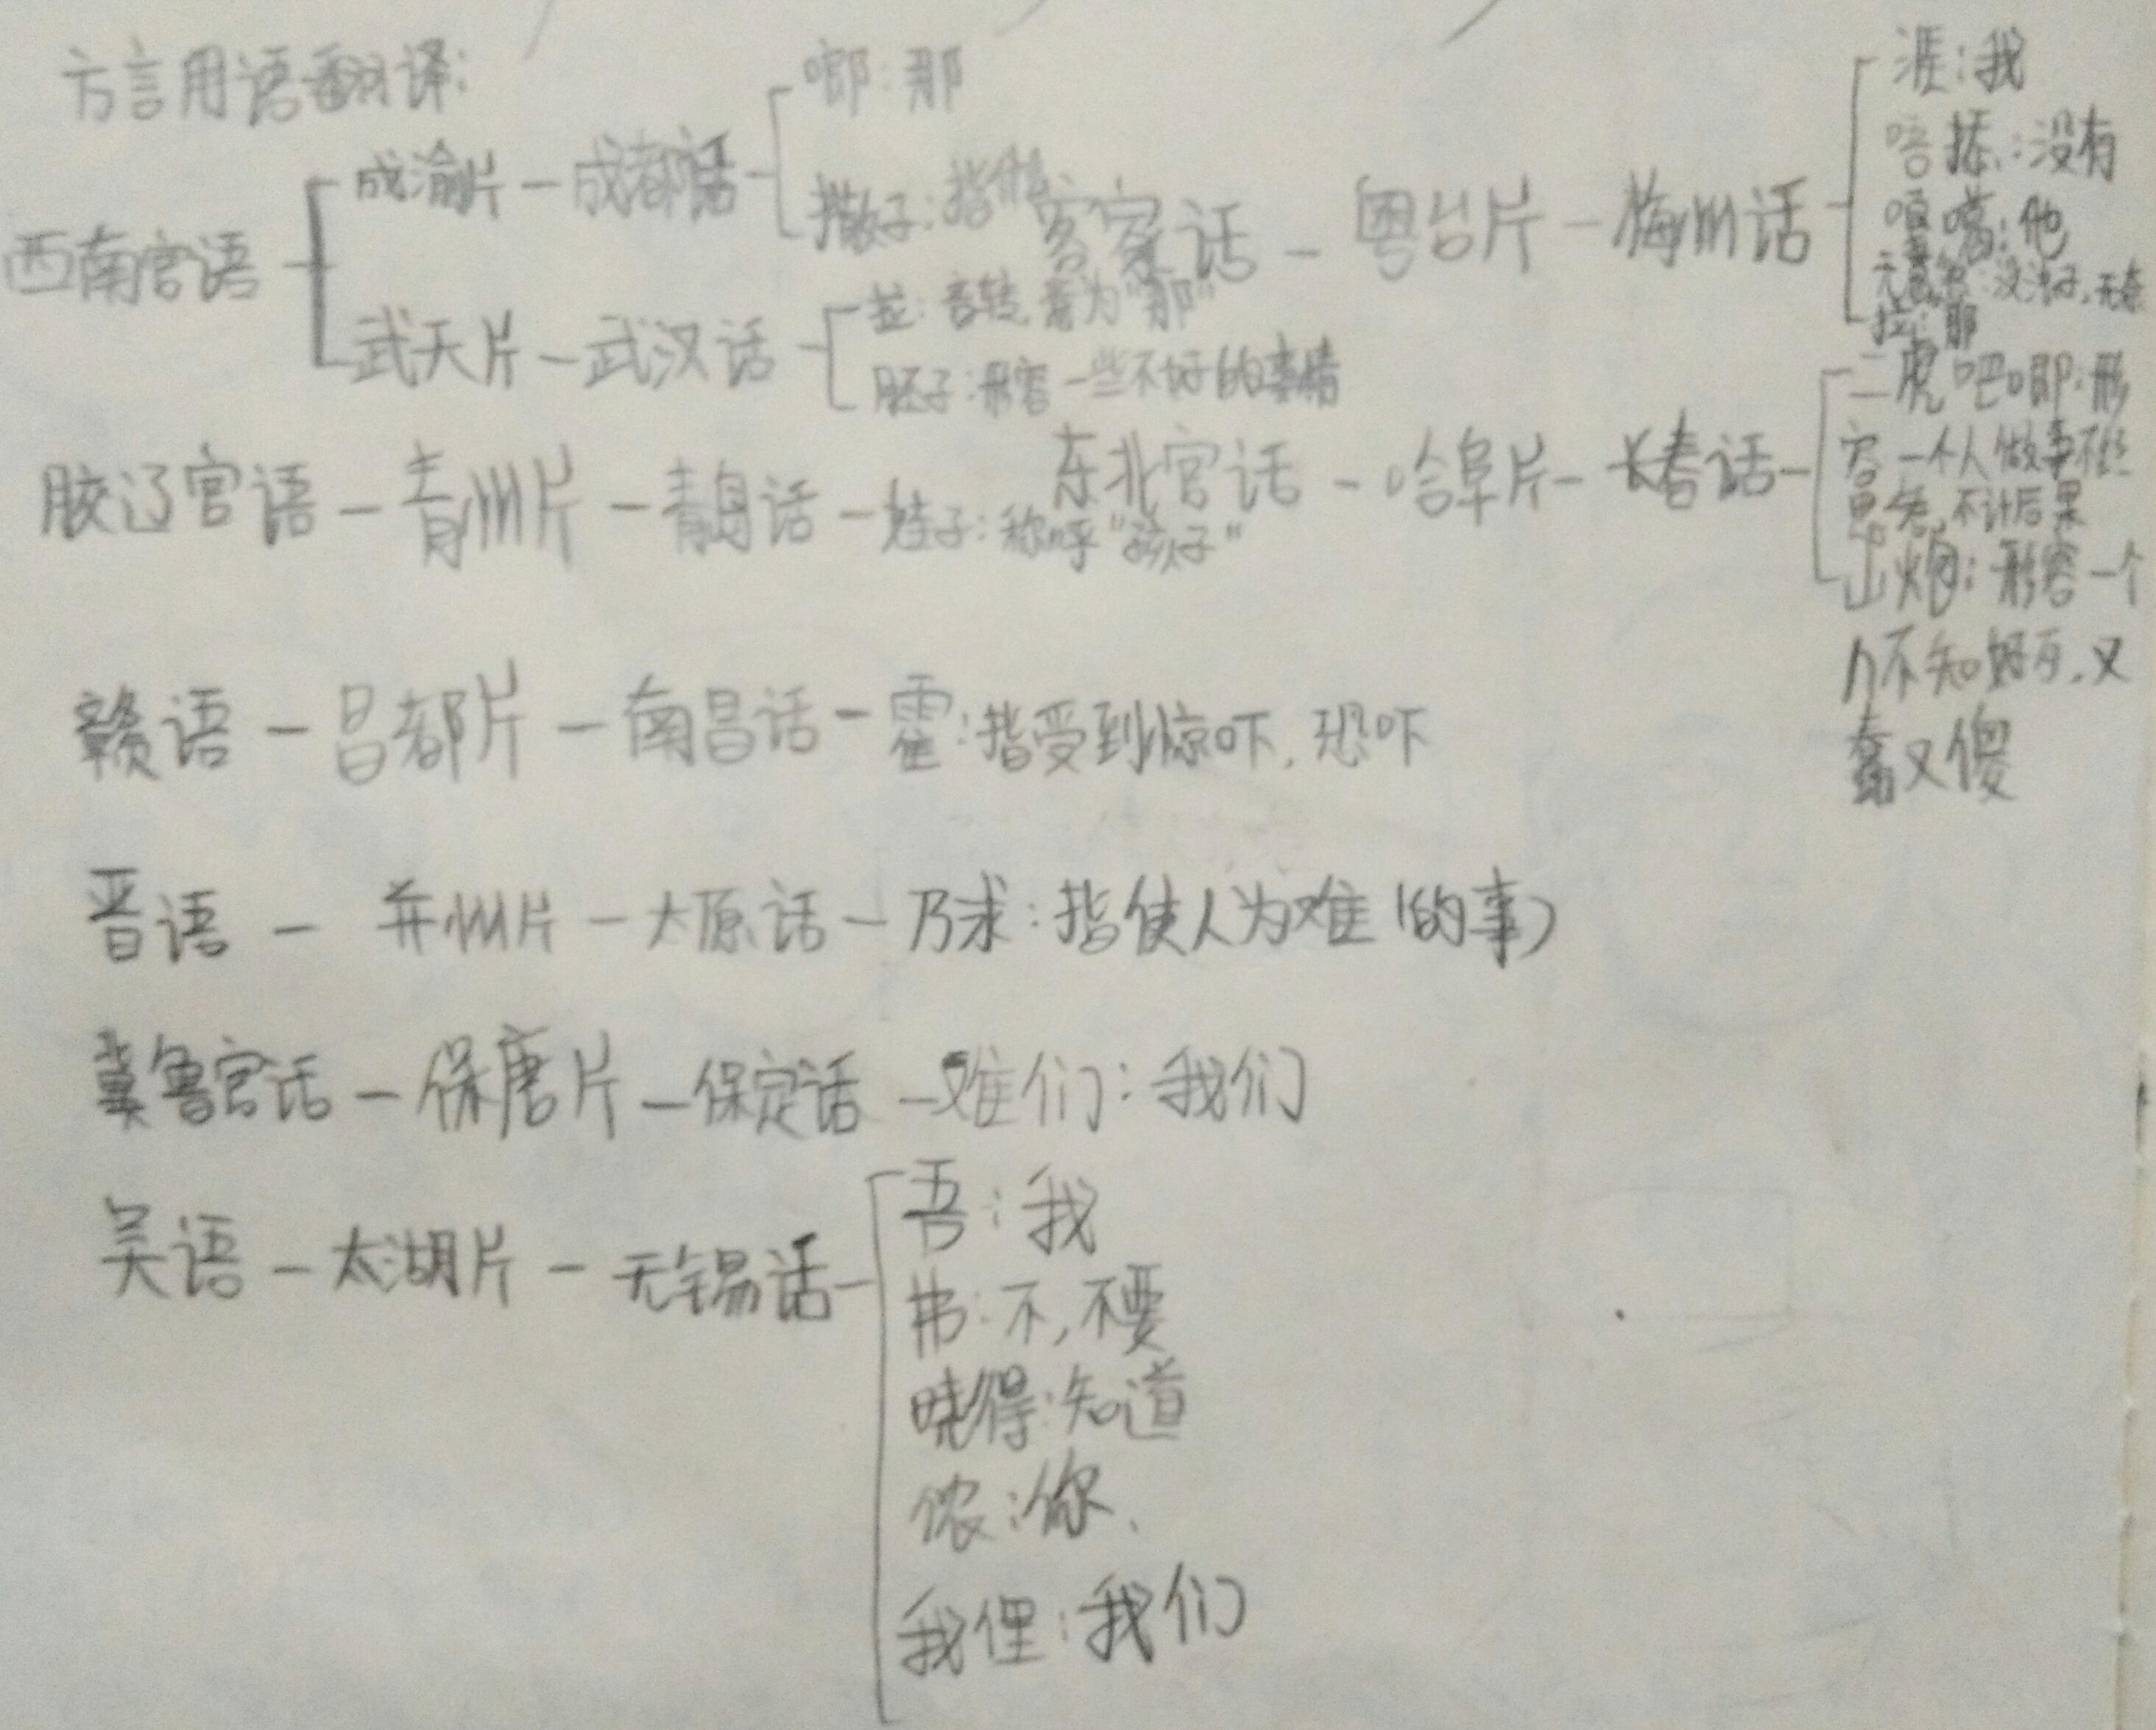 方言用语翻译:
西南官语
成渝片 — 成都话
啷:那
撒子:指什么
武天片 — 武汉话
拉:音转,意为"那"
胚子:形容一些不好的事情
胶辽官语 — 青州片 — 青岛话 — 娃子:称呼"孩子"
赣语 — 昌都片 — 南昌话 — 霍:指受到惊吓,恐吓
晋语 — 并州片 — 太原话 — 乃求:指使人为难(的事)
冀鲁官话 — 保唐片 — 保定话 — 难们:我们
吴语 — 太湖片 — 无锡话
吾:我
弗:不,不要
晓得:知道
侬:你、
我俚:我们
客家话 — 粤台片 — 梅州话
涯:我
:没有
:他
:没法子,无奈
拉:那
东北官话 — 哈阜片 — 长春话
二虎吧唧:形
容一个人做事不经
思考,不计后果
山炮:形容一个
人不知好歹,又
蠢又傻